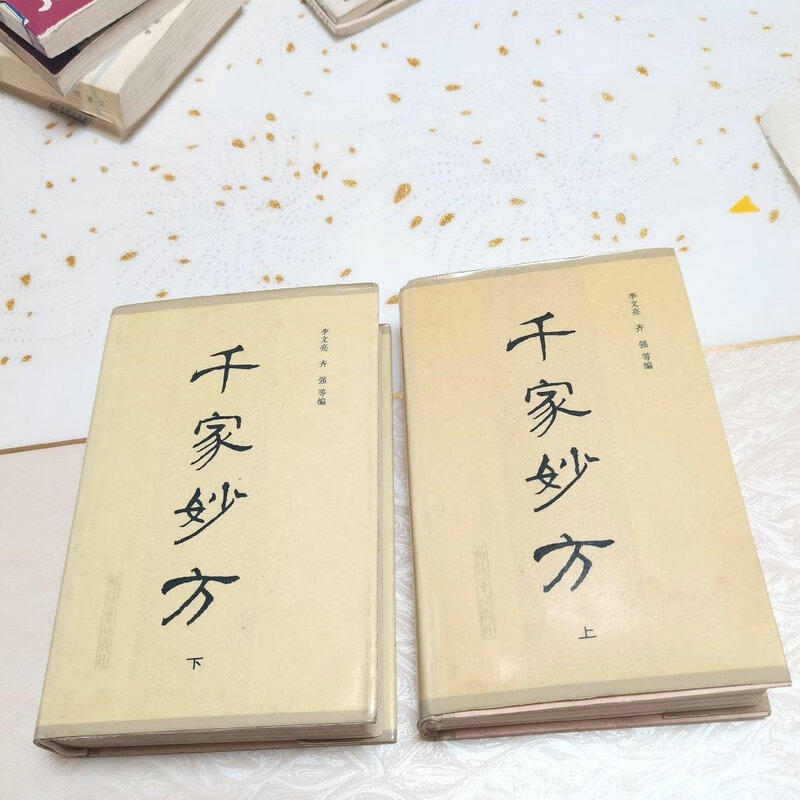 李文亮 齐强等编
千家妙方
下
李文亮 齐强等编
千家妙方
上